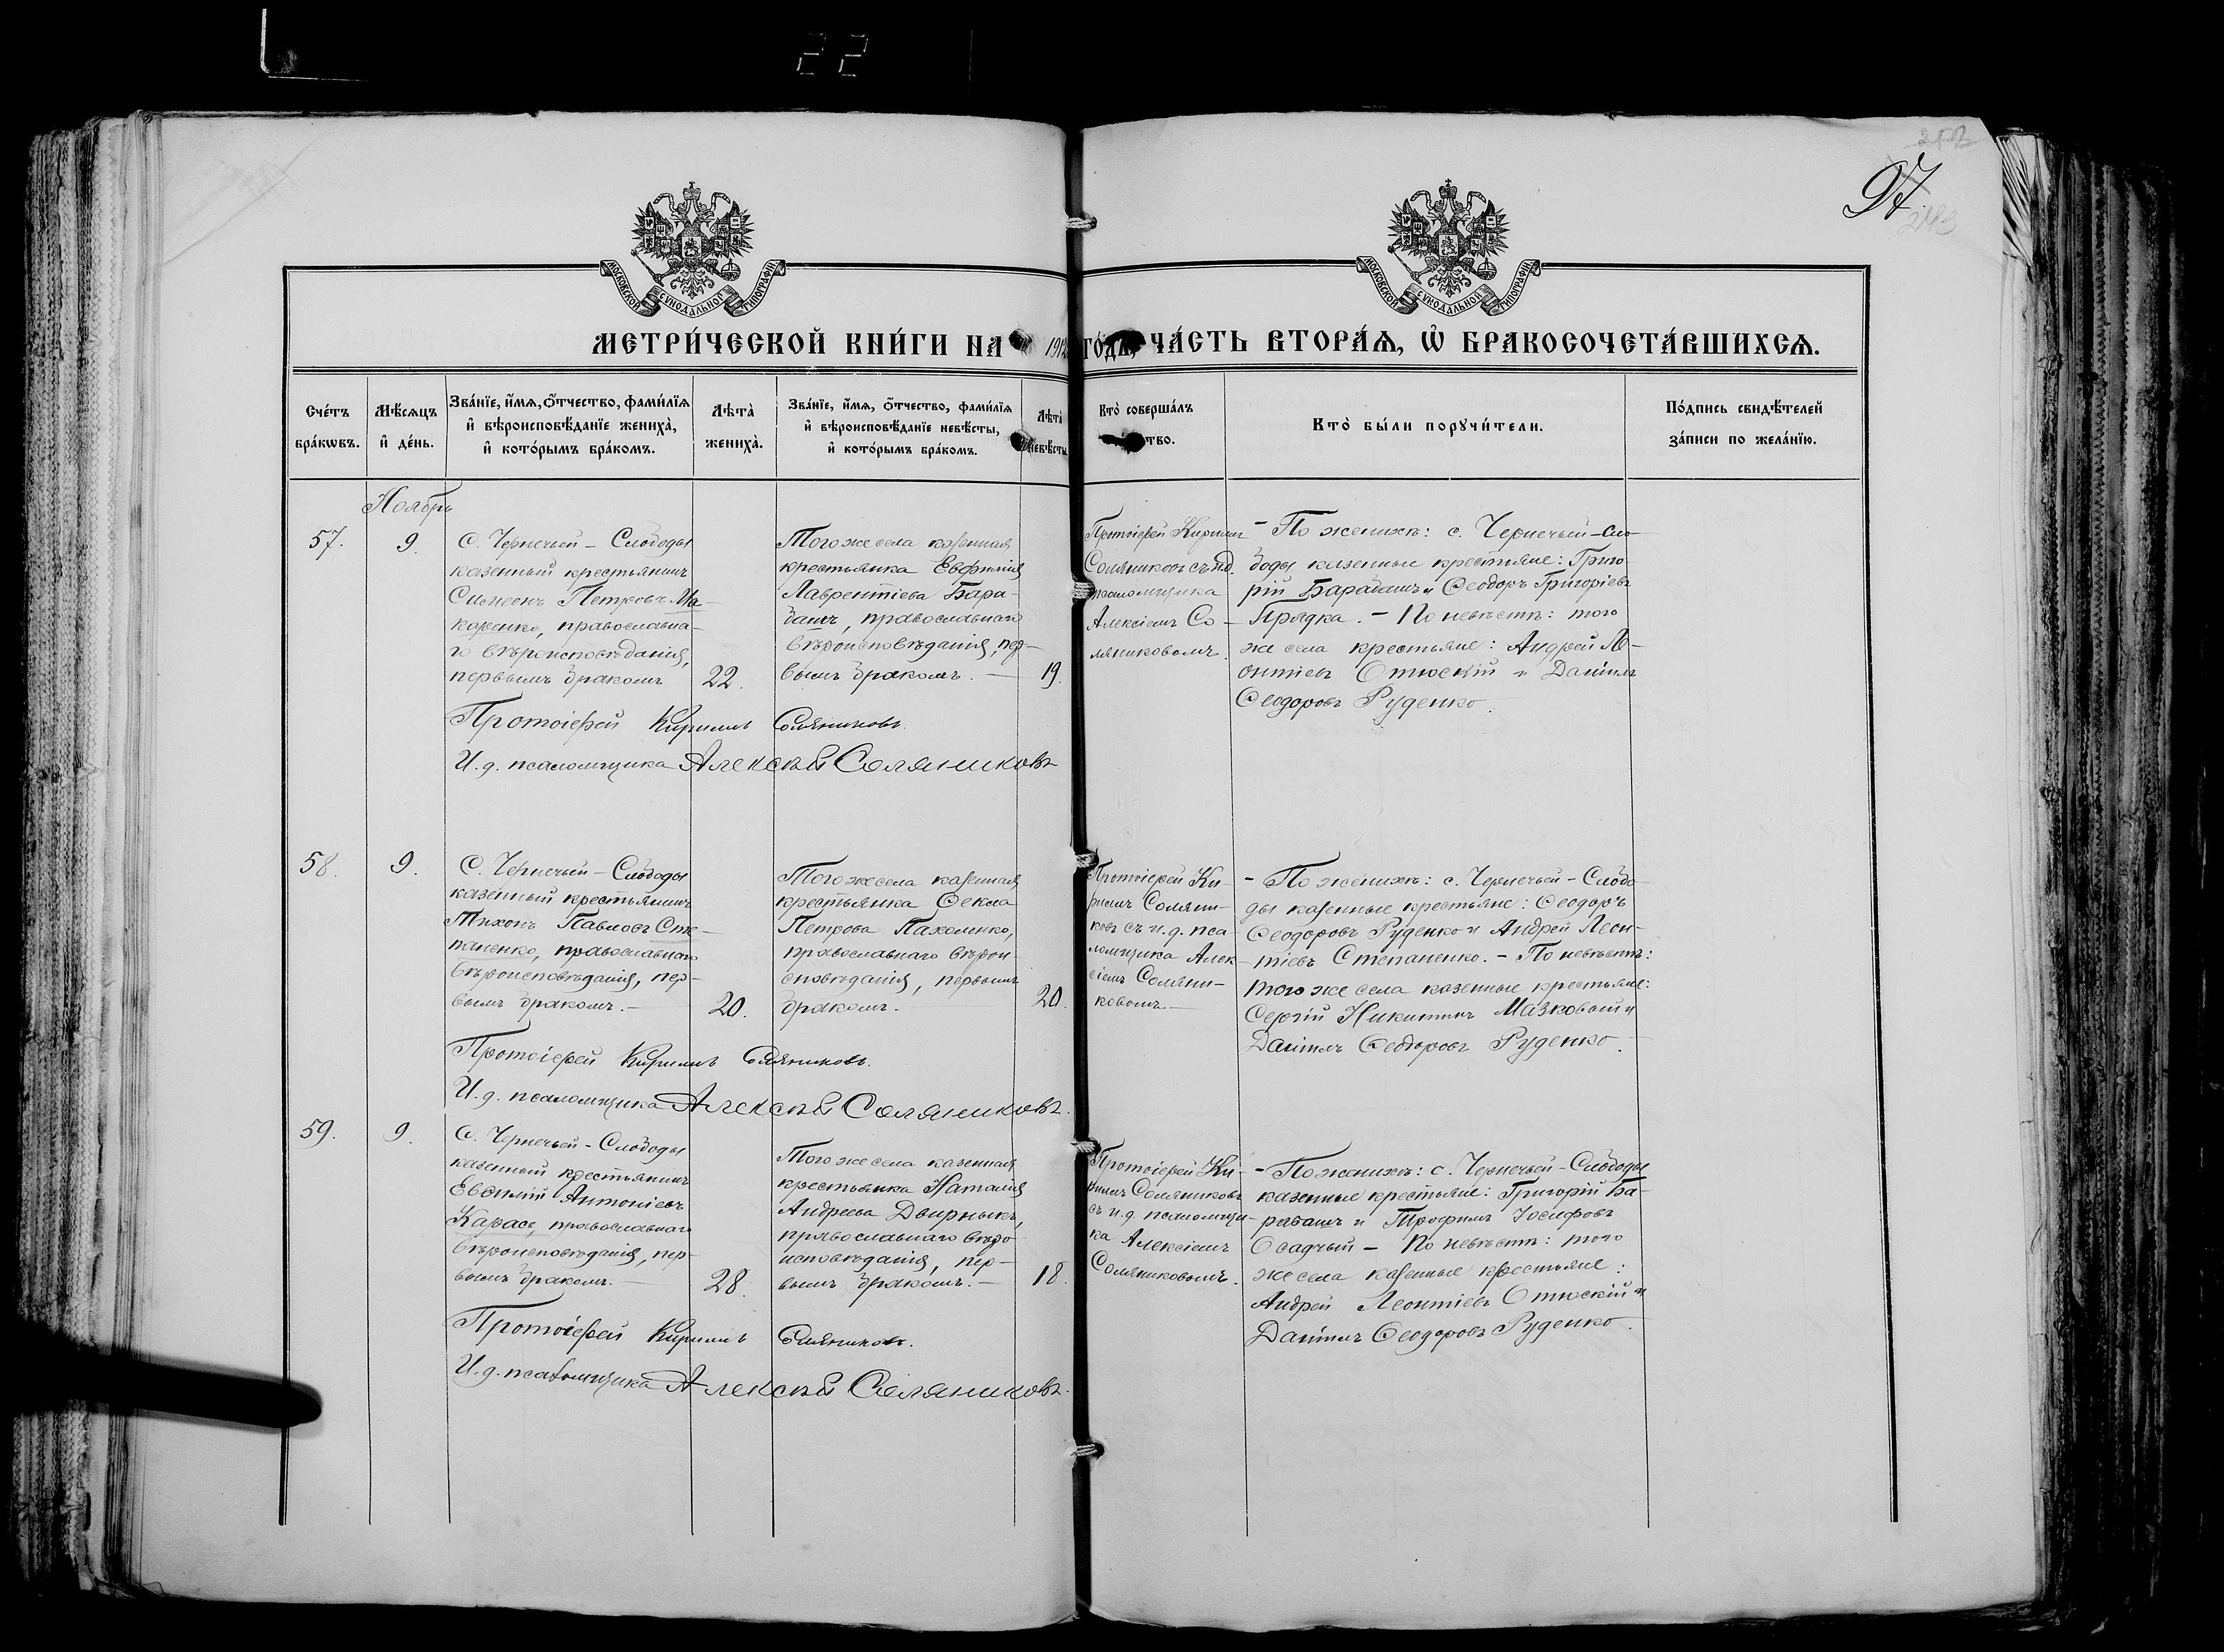 22
97.
МОСКОВСКОЙ СѴНОДАЛЬНОЙ ТИПОГРАФІИ
МОСКОВСКОЙ СѴНОДАЛЬНОЙ ТИПОГРАФІИ
МЕТРИ́ЧЕСКОЙ КНИ́ГИ НА 191 ГО́ДЪ, ЧА́СТЬ ВТОРА́Ѧ, Ѡ҆ БРАКОСОЧЕТА́ВШИХСѦ.
Сче́тъ бра́кѡвъ.
Мѣ́сѧцъ и҆ де́нь.
Зва́нїе, и҆́мѧ, ѻ҆́тчество, фами́лїѧ и҆ вѣроисповѣ́данїе жениха̀, и҆ кото́рымъ бра́комъ.
Лѣта̀ жениха̀.
Зва́нїе, и҆́мѧ, ѻ҆́тчество, фами́лїѧ и҆ вѣроисповѣ́данїе невѣ́сты, и҆ кото́рымъ бра́комъ.
Лѣта̀ невѣ́сты
Кто̀ соверша́лъ тво.
Кто̀ бы́ли порꙋчи́тели.
По́дпись свидѣ́телей за́писи по жела́нїю.
Ноябрь
57.
9.
С. Чернечьей - Слободы
казенный крестьянинъ
Симеонъ Петровъ Ма-
каренко, православна-
го вѣроисповѣданія,
первымъ бракомъ
22.
Того же села казенная
крестьянка Евфимія
Лаврентіева Бара-
башъ, православнаго
вѣроисповѣданія, пер-
вымъ бракомъ. —
19.
Протоіерей Кириллъ
Соляниковъ съ и.д.
псаломщика
Алексіемъ Со-
ляниковомъ.
- По женихѣ: с. Чернечьей - Сло-
боды казенные крестьяне: Григо-
рій Барабашъ и Ѳеодоръ Григоріевъ
Прядка. - По невѣстѣ: того
же села крестьяне: Андрей Ле-
онтіевъ Отюскій и Даніилъ
Ѳеодоровъ Руденко.
Протоіерей Кириллъ Соляниковъ.
И. д. псаломщика Алексѣй Соляниковъ
58.
9.
С. Чернечьей - Слободы
казенный крестьянинъ
Тихонъ Павловъ Сте-
паненко, православнаго
вѣроисповѣданія, пер-
вымъ бракомъ. -
20.
Того же села казенная
крестьянка Ѳекла
Петрова Пахоленко,
православнаго вѣрои-
сповѣданія, первымъ
бракомъ.
20.
Протоіерей Ки-
риллъ Соляни-
ковъ съ и. д. пса-
ломщика Алек-
сіемъ Соляни-
ковомъ. -
- По женихѣ: с. Чернечьей - Слобо-
ды казенные крестьяне: Ѳеодоръ
Ѳеодоровъ Руденко и Андрей Леон-
тіевъ Степаненко. - По невѣстѣ:
того же села казенные крестьяне:
Сергій Никитинъ Мазковый и
Даніилъ Ѳеодоровъ Руденко.
Протоіерей Кириллъ Соляниковъ.
И. д. псаломщика Алексѣй Соляниковъ.
59.
9.
С. Чернечьей - Слободы
казенный крестьянинъ
Евѳимій Антоніевъ
Карась, православнаго
вѣроисповѣданія, пер-
вымъ бракомъ. —
28.
Того же села казенная
крестьянка Наталія
Андреева Двирныкъ,
православнаго вѣро-
исповѣданія, пер-
вымъ бракомъ. -
18.
Протоіерей Ки-
риллъ Соляниковъ
съ и. д. псаломщи-
ка Алексіемъ
Соляниковомъ.
- По женихѣ: с. Чернечьей - Слободы
казенные крестьяне: Григорій Ба-
рабашъ и Трофимъ Іосифовъ
Осадчый - По невѣстѣ: того
же села казенные крестьяне:
Андрей Леонтіевъ Отюскій и
Даніилъ Ѳеодоровъ Руденко.
Протоіерей Кириллъ Соляниковъ.
И. д. псаломщика Алексѣй Соляниковъ.